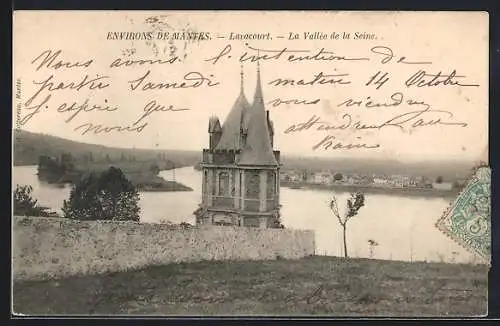 ENVIRONS DE MANTES. - Lavacourt. - La Vallée de la Seine.
Nous avons l'intention de
partir Samedi matin 14 Octobre
J'espère que vous viendrez
nous attendre au
train